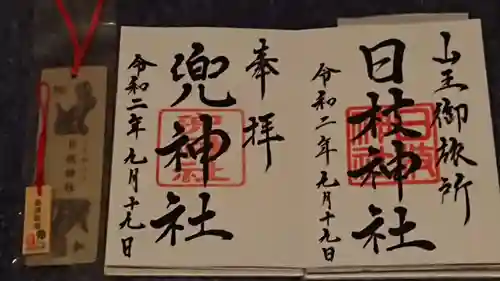 山王御旅所
日枝神社
令和二年九月十九日
奉拝
兜神社
令和二年九月十九日